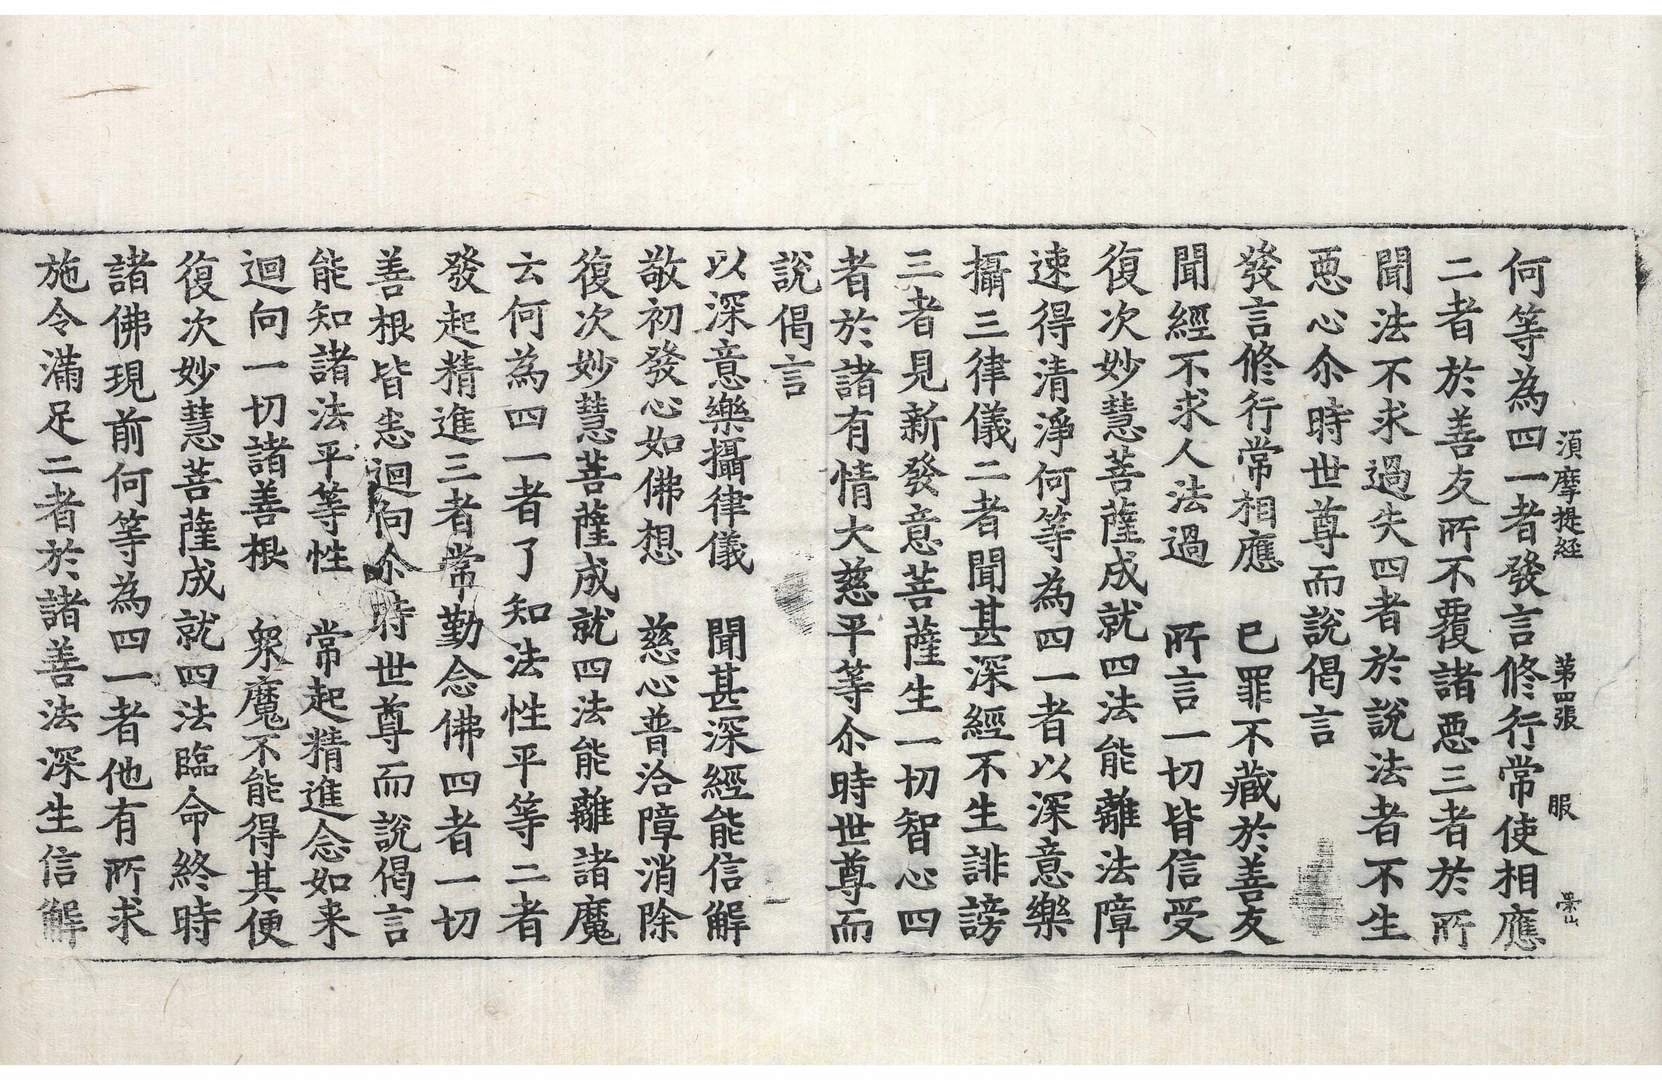 湏摩提経 第四張 服 景山
何等為四一者發言修行常使相應
二者於善友所不覆諸惡三者於所
聞法不求過失四者於說法者不生
惡心尒時世尊而說偈言
發言修行常相應 已罪不藏於善友
聞經不求人法過 所言一切皆信受
復次妙慧菩薩成就四法能離法障
速得清淨何等為四一者以深意樂
攝三律儀二者聞甚深經不生誹謗
三者見新發意菩薩生一切智心四
者於諸有情大慈平等尒時世尊而
說偈言
以深意樂攝律儀 聞甚深經能信解
敬初發心如佛想 慈心普洽障消除
復次妙慧菩薩成就四法能離諸魔
云何為四一者了知法性平等二者
發起精進三者常勤念佛四者一切
善根皆悉迴向尒時世尊而說偈言
能知諸法平等性 常起精進念如来
迴向一切諸善根 衆魔不能得其便
復次妙慧菩薩成就四法臨命終時
諸佛現前何等為四一者他有所求
施令滿足二者於諸善法深生信解